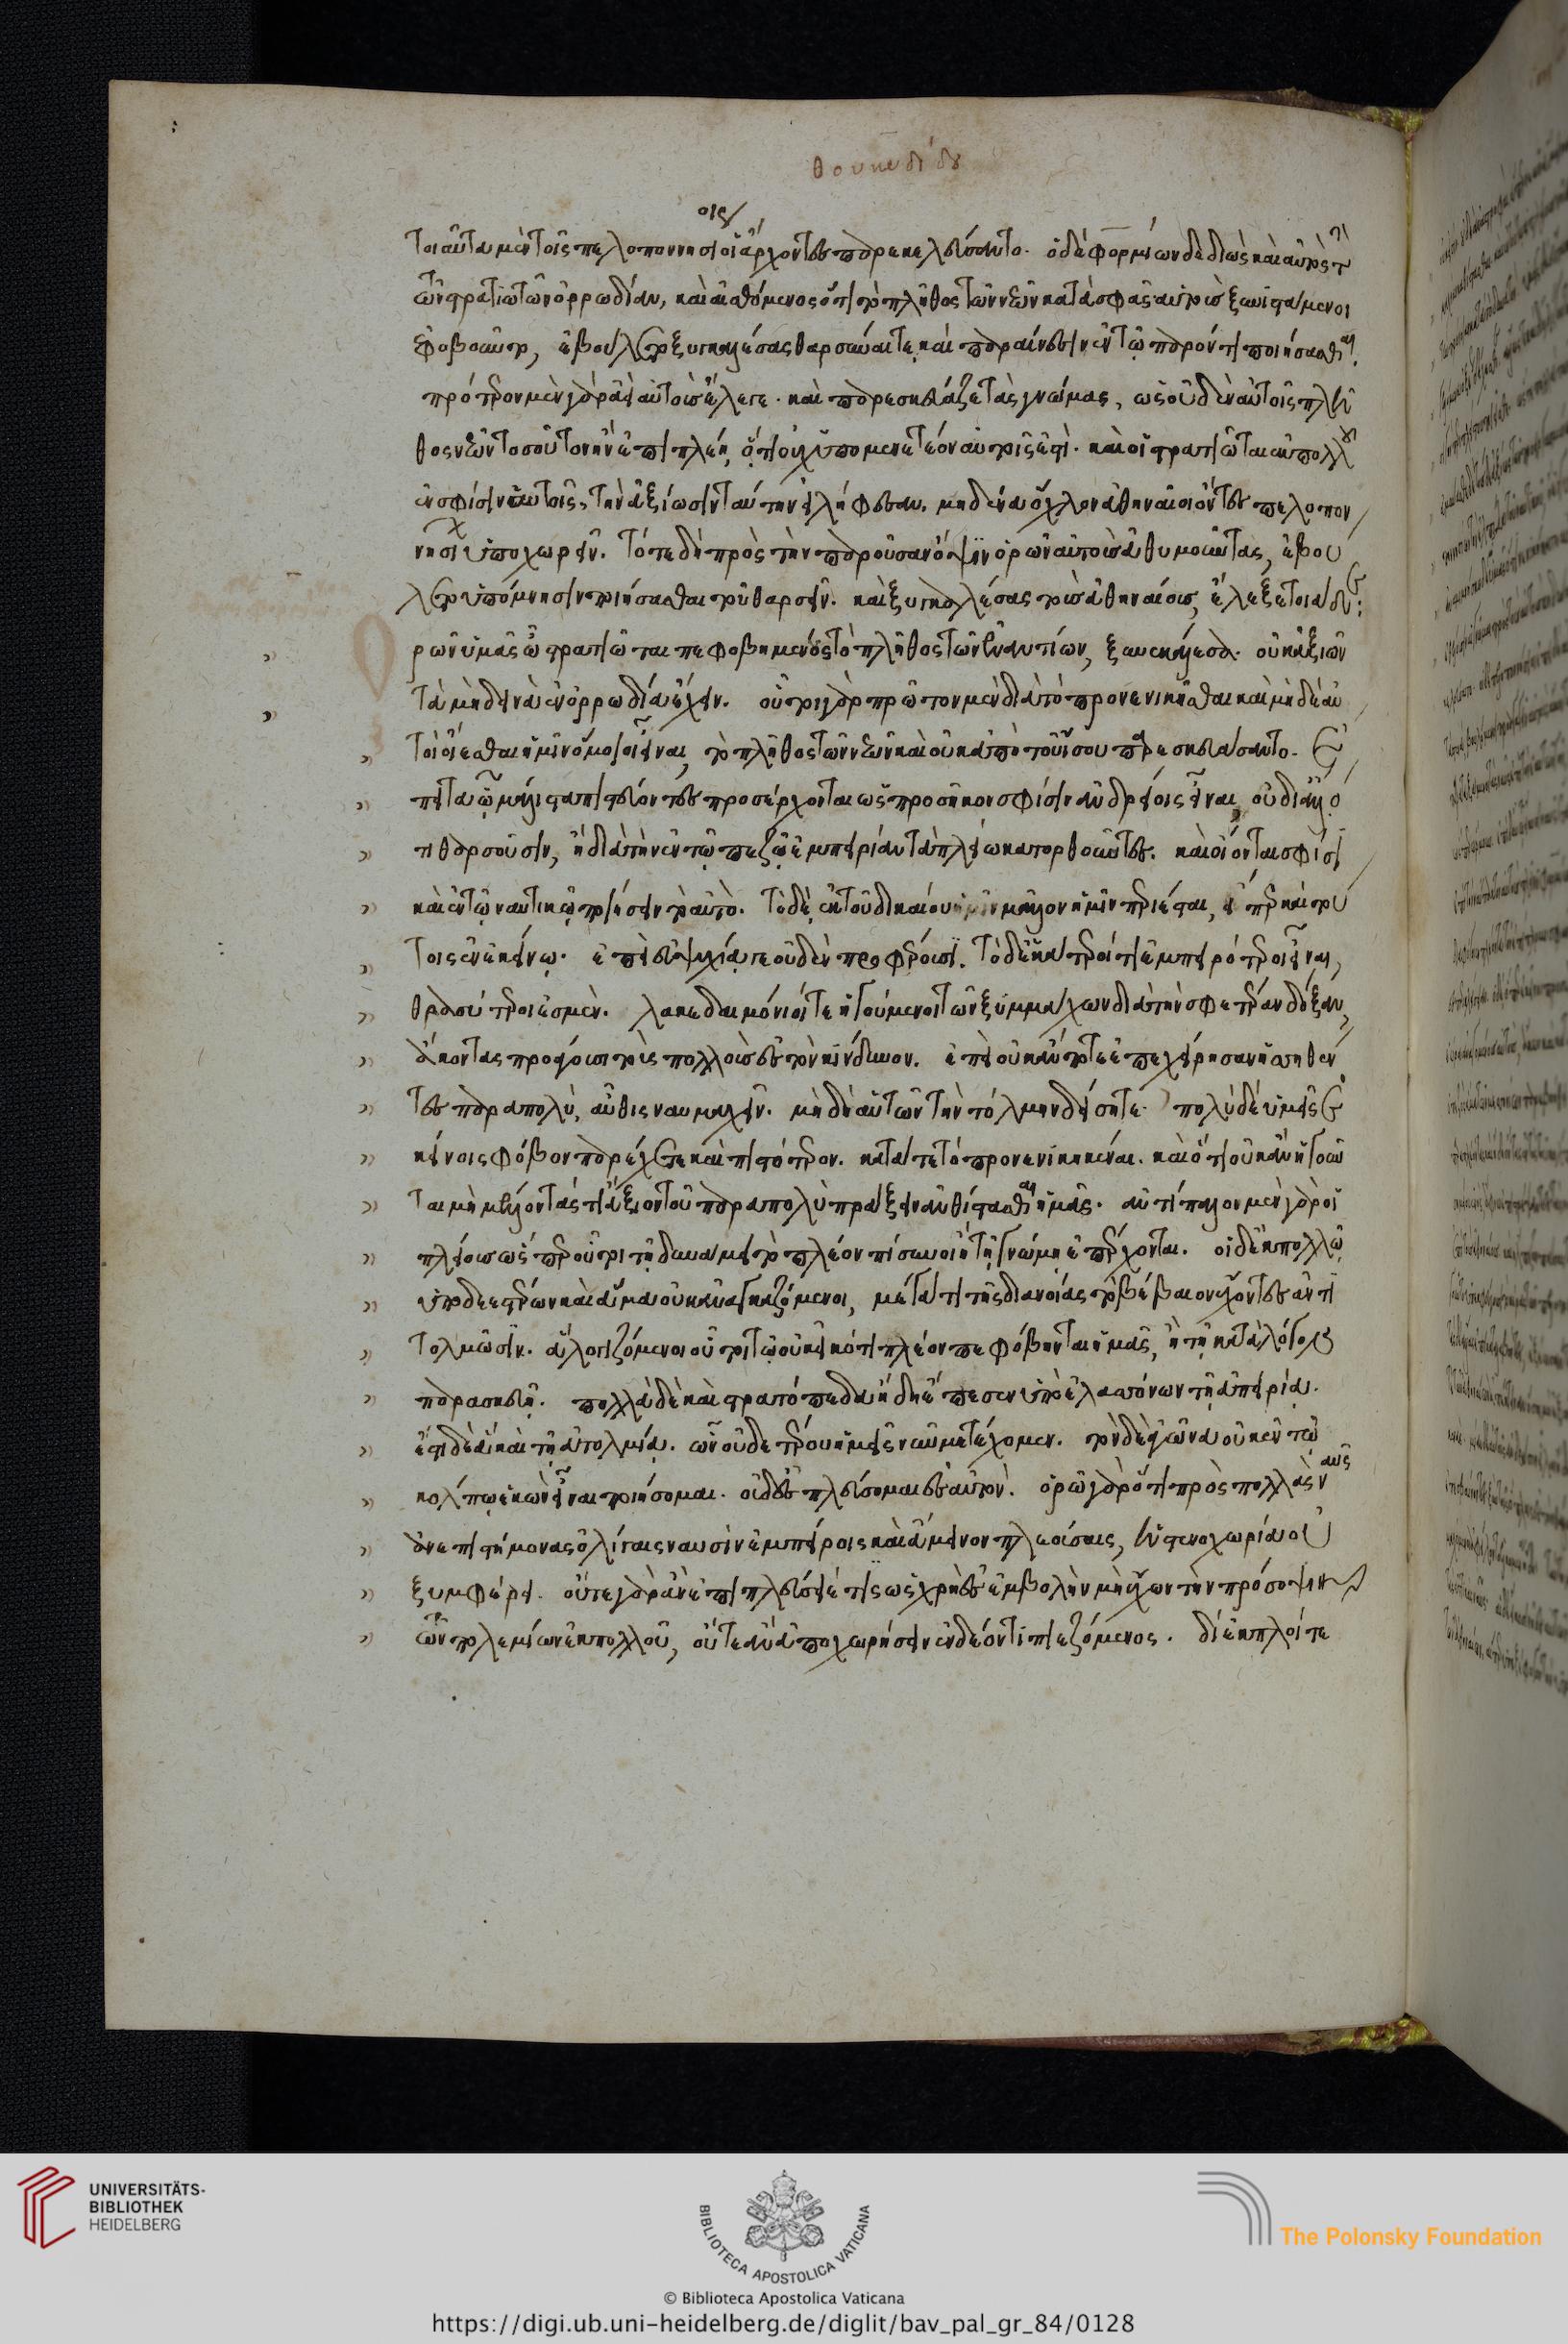 θουκυδίδου
τοιαῦτα μὲν τοῖς πελοποννησίοις οἱ ἄρχοντες παρεκελεύσαντο. ὁ δὲ φορμίων δεδιὼς καὶ αὐτὸς τὴν
τῶν στρατιωτῶν ὀρρωδίαν, καὶ αἰσθόμενος ὅτι τὸ πλῆθος τῶν νεῶν κατὰ σφᾶς αὐτοὺς ξυνιστάμενοι
ἐφοβοῦντο, ἐβούλετο ξυγκαλέσας θαρσῦναί τε καὶ παραίνεσιν ἐν τῷ παρόντι ποιήσασθαι.
πρότερον μὲν γὰρ ἀεὶ αὐτοῖς ἔλεγε. καὶ παρεσκεύαζε τὰς γνώμας, ὡς οὐδὲν αὐτοῖς πλῆ
θος νεῶν τοσοῦτον ἢν ἐπιπλέῃ, ὅ,τι οὐχ ὑπομενετέον αὐτοῖς ἐστὶ. καὶ οἱ στρατιῶται ἐκ πολλοῦ
ἐν σφίσιν αὐτοῖς, τὴν ἀξίωσιν ταύτην εἰλήφεσαν. μηδένα ὄχλον ἀθηναῖοι ὄντες πελοπον
νησίων ὑποχωρεῖν. τότε δὴ πρὸς τὴν παροῦσαν ὄψιν ὁρῶν αὐτοὺς ἀθυμοῦντας, ἐβού
λετο ὑπόμνησιν ποιήσασθαι τοῦ θαρσεῖν. καὶ ξυγκαλέσας τοὺς ἀθηναίους, ἔλεξε τοιάδε:
ρῶν ὑμᾶς ὦ στρατιῶται πεφοβημένους τὸ πλῆθος τῶν ἐναντίων, ξυνεκάλεσα. οὐκ ἀξιῶν
τὰ μὴ δεινὰ ἐν ὀρρωδίᾳ ἔχειν. οὗτοι γὰρ πρῶτον μὲν διὰ τὸ προνενικῆσθαι καὶ μὴ δὲ αὐ
τοὶ οἴεσθαι ἡμῖν ὅμοιοι εἶναι, τὸ πλῆθος τῶν νεῶν καὶ οὐκ ἀπὸ τοῦ ἴσου παρεσκευάσαντο. ἔ
πειτα ᾧ μάλιστα πιστεύοντες προσέρχονται ὡς προσῆκον σφίσιν ἀνδρείοις εἶναι, οὐ δι' ἄλλο
τι θαρσοῦσιν, ἢ διὰ τὴν ἐν τῷ πεζῷ ἐμπειρίαν τὰ πλείω κατορθοῦντες. καὶ οἴονται σφίσι
καὶ ἐν τῷ ναυτικῷ ποιήσειν τὸ αὐτὸ. τὸ δὲ, ἐκ τοῦ δικαίου μᾶλλον ἡμῖν περιέσται, εἴπερ καὶ τού
τοις ἐν ἐκείνῳ. ἐπεὶ εὐψυχίᾳ τε οὐδὲν προφέρουσι. τὸ δὲ ἑκάτεροί τι ἐμπειρότεροι εἶναι,
θρασύτεροι ἐσμὲν. λακεδαιμόνιοί τε ἡγούμενοι τῶν ξυμμάχων διὰ τὴν σφετέραν δόξαν,
ἄκοντας προσάγουσι τοὺς πολλοὺς ἐς τὸν κίνδυνον. ἐπεὶ οὐκ ἄν ποτε ἐπεχείρησαν ἡσσηθέν
τες παραπολὺ, αὖθις ναυμαχεῖν. μὴ δὴ αὐτῶν τὴν τόλμην δείσητε. πολὺ δὲ ὑμεῖς ἐ
κείνοις φόβον παρέχετε καὶ πιστότερον. κατά τε τὸ προνενικηκέναι. καὶ ὅτι οὐκ ἂν ἡγοῦν
ται μὴ μέλλοντάς τι ἄξιον τοῦ παραπολὺ πράξειν ἀνθίστασθαι ἡμᾶς. ἀντίπαλοι μὲν γὰρ οἱ
πλείους ὥσπερ οὗτοι τῇ δυνάμει τὸ πλέον πίσυνοι ἢ τῇ γνώμῃ ἐπέρχονται. οἱ δὲ ἐκ πολλῷ
ὑποδεεστέρων καὶ ἅμα οὐκ ἀναγκαζόμενοι, μέγα τι τῆς διανοίας τὸ βέβαιον ἔχοντες ἀντι
τολμῶσιν. ἃ λογιζόμενοι οὗτοι τῷ οὐκ εἰκότι πλέον πεφόβηνται ἡμᾶς, ἢ τῇ κατὰ λόγον
παρασκευῇ. πολλὰ δὲ καὶ στρατόπεδα ἤδη ἔπεσεν ὑπὸ ἐλασσόνων τῇ ἀπειρίᾳ.
ἔστι δὲ ἃ καὶ τῇ ἀτολμίᾳ. ὧν οὐδετέρου ἡμεῖς νῦν μετέχομεν. τὸν δὲ ἀγῶνα οὐκ ἐν τῷ
κόλπῳ ἑκὼν εἶναι ποιήσομαι. οὐδ' ἐσπλεύσομαι ἐς αὐτὸν. ὁρῶ γὰρ ὅτι πρὸς πολλὰς ναῦς
ἀνεπιστήμονας ὀλίγαις ναυσὶν ἐμπείροις καὶ ἄμεινον πλεούσαις, ἡ στενοχωρία οὐ
ξυμφέρει. οὔτε γὰρ ἂν ἐπιπλεύσειέ τις ὡς χρὴ ἐς ἐμβολὴν μὴ ἔχων τὴν πρόσοψιν τ
ῶν πολεμίων ἐκ πολλοῦ, οὔτε ἂν ἀποχωρήσειεν ἐν δέοντι πιεζόμενος. διέκπλοί τε
UNIVERSITÄTS-
BIBLIOTHEK
HEIDELBERG
BIBLIOTECA APOSTOLICA VATICANA
The Polonsky Foundation
© Biblioteca Apostolica Vaticana
https://digi.ub.uni-heidelberg.de/diglit/bav_pal_gr_84/0128